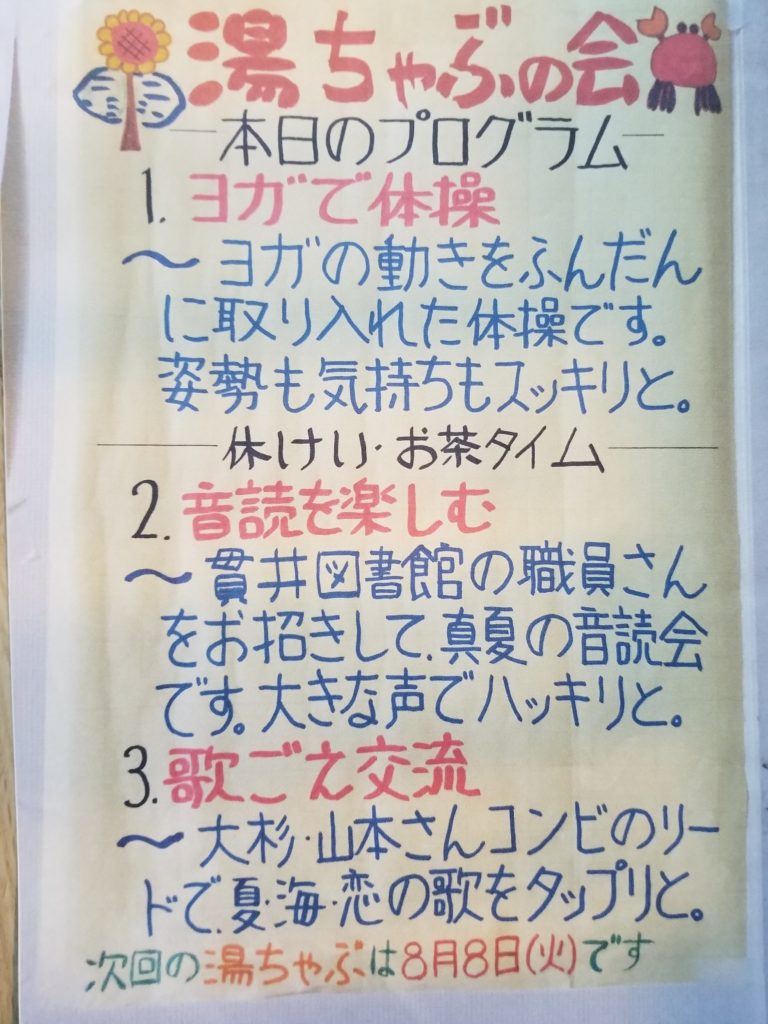 湯ちゃぶの会
―本日のプログラム―
1. ヨガで体操
～ ヨガの動きをふんだん
に取り入れた体操です。
姿勢も気持ちもスッキリと。
休けい・お茶タイム
2. 音読を楽しむ
～ 貫井図書館の職員さん
をお招きして、真夏の音読会
です。大きな声でハッキリと。
3. 歌ごえ交流
～ 大杉・山本さんコンビのリー
ドで、夏・海・恋の歌をタップリと。
次回の湯ちゃぶは8月8日(火)です